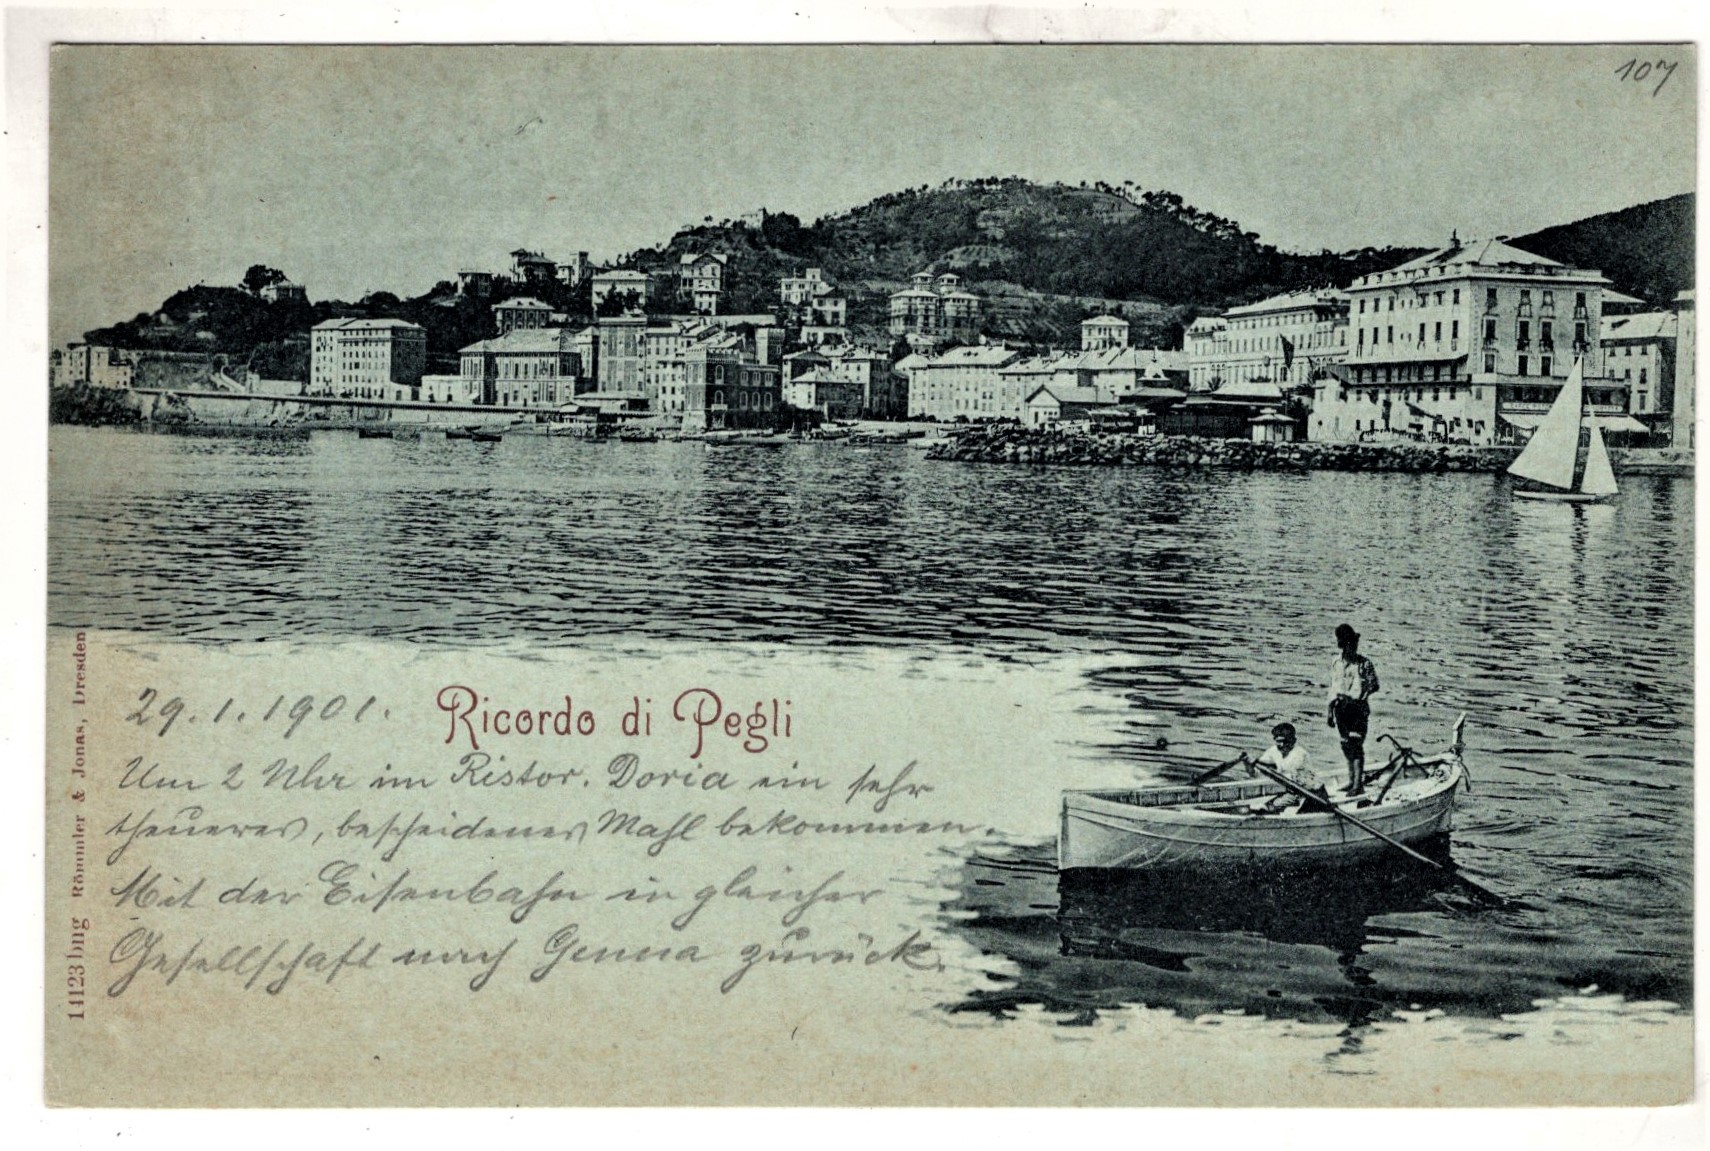 107
29. 1. 1901.
Ricordo di Pegli
Um 2 Uhr im Ristor. Doria ein sehr
theueres, bescheidenes Mahl bekommen.
Mit der Eisenbahn in gleicher
Gesellschaft nach Genua zurück.
11123 Römmler & Jonas, Dresden